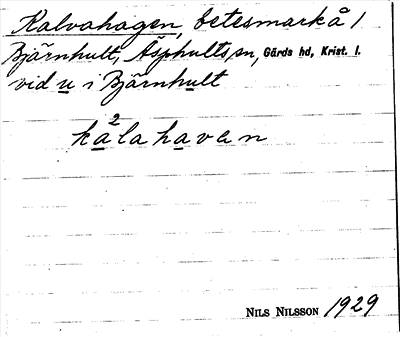 Kalvahagen, betesmark å 1
Björnhult, Äsphults sn, Gärds hd, Krist. l.
vid u i Björnhult
ka²lahavan
NILS NILSSON 1929